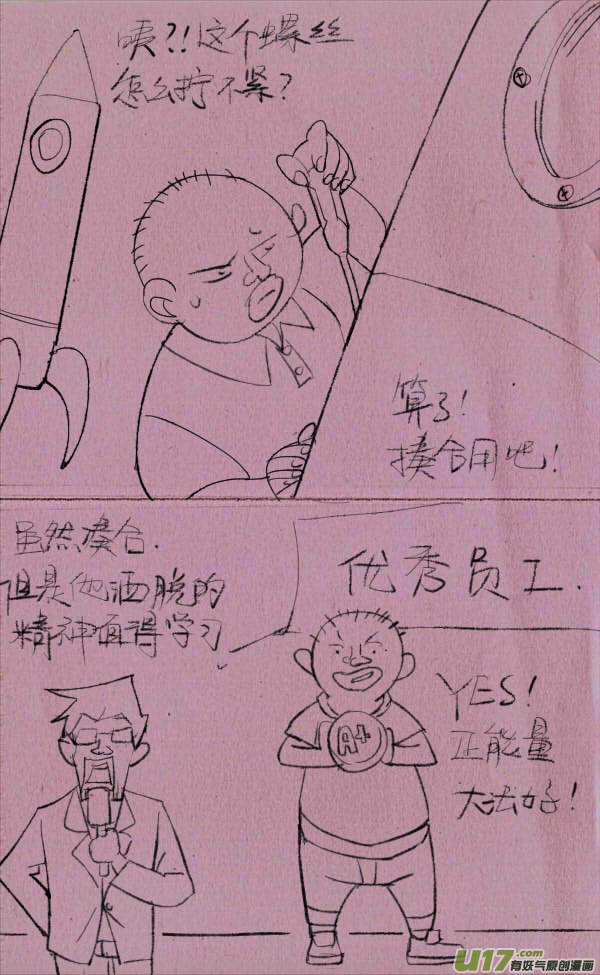 咦?!这个螺丝
怎么拧不紧?
算了!
揍合用吧!
虽然凑合.
但是他洒脱的
精神值得学习
优秀员工.
A+
YES!
正能量
大法好!
U17.com
有妖气原创漫画